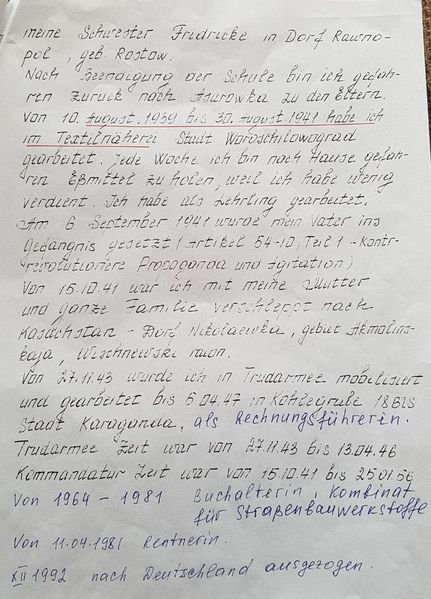 meine Schwester Fridricke in Dorf Rawno-
pol, geb. Rostow.
Nach Beendigung der Schule bin ich gefah-
ren zurück nach Asurowka zu den Eltern.
Von 10. August. 1939 bis 30. August 1941 habe ich
im Textilnäherei Stadt Woroschilowograd
gearbeitet. Jede Woche ich bin nach Hause gefah-
ren Eßmittel zu holen, weil ich habe wenig
verdient. Ich habe als Lehrling gearbeitet.
Am 6 September 1941 wurde mein Vater ins
Gefängnis gesetzt (Artikel 54-10, Teil 1 - Kontr-
rewolutionere Propaganda und Agitation)
Von 15.10.41 war ich mit meine Mutter
und ganze Familie verschleppt nach
Kasachstan - Dorf Nikolaewka, gebiet Akmolins-
kaja, Wischnewski raion.
Von 27.11.43 wurde ich in Trudarmee mobilisiert
und gearbeitet bis 6.04.47 in Kohlegrube 18 BIS
Stadt Karaganda, als Rechnungsführerin.
Trudarmee Zeit war von 27.11.43 bis 13.04.46
Kommandatur Zeit war von 15.10.41 bis 25.01.56
Von 1964 - 1981 Buchalterin, Kombinat
für Straßenbauwerkstoffe
Von 11.04.1981 Rentnerin.
XII 1992 nach Deutschland ausgezogen.